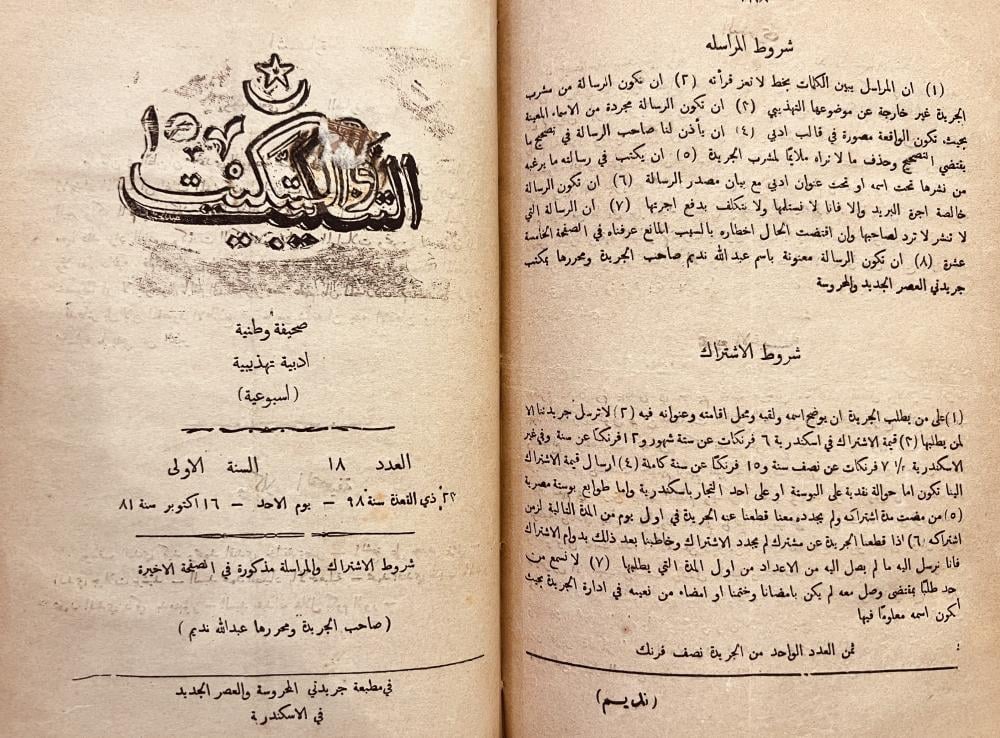 شروط المراسله
(١) ان المراسل يبين الكلمات بخط لا تعز قرأته (٢) ان تكون الرسالة من مشرب
الجريدة غير خارجة عن موضوعها التهذيبي (٣) ان تكون الرسالة مجردة من الاسماء المعينة
بحيث تكون الواقعة مصورة في قالب ادبي (٤) ان يأذن لنا صاحب الرسالة في تصحيح ما
يقتضي التصحيح وحذف ما لا نراه ملائمًا لمشرب الجريدة (٥) ان يكتب في رسالته ما يرغبه
من نشرها تحت اسمه او تحت عنوان ادبي مع بيان مصدر الرسالة (٦) ان تكون الرسالة
خالصة اجرة البريد والا فانا لا نستلمها ولا نتكلف بدفع اجرتها (٧) ان الرسالة التي
لا تنشر لا ترد لصاحبها وإن اقتضت الحال اخطاره بالسبب المانع عرفناه في الصفحة الخامسة
عشرة (٨) ان تكون الرسالة معنونة باسم عبد الله نديم صاحب الجريدة ومحررها بمكتب
جريدتي العصر الجديد والمحروسة
شروط الاشتراك
(١) على من يطلب الجريدة ان يوضح اسمه ولقبه ومحل اقامته وعنوانه فيه (٢) لا ترسل جريدتنا الا
لمن يطلبها (٣) قيمة الاشتراك في اسكندرية ٦ فرنكات عن ستة شهور و١٢ فرنكًا عن سنة وفي غير
الاسكندرية ٧ ١/٢ فرنكات عن نصف سنة و١٥ فرنكًا عن سنة كاملة (٤) ارسال قيمة الاشتراك
الينا تكون اما حوالة نقدية على البوستة او على احد التجار باسكندرية واما طوابع بوستة مصرية
(٥) من مضت مدة اشتراكه ولم يجدده معنا قطعنا عنه الجريدة في اول يوم من المدة التالية لزمن
اشتراكه (٦) اذا قطعنا الجريدة عن مشترك لم يجدد الاشتراك وخاطبنا بعد ذلك بدوام الاشتراك
فانا نرسل اليه ما لم يصل اليه من الاعداد من اول المدة التي يطلبها (٧) لا نسمع من
احد طلبًا بمقتضى وصل معه لم يكن بامضانا وختمنا او امضاء من نعينه في ادارة الجريدة بحيث
يكون اسمه معلومًا فيها
ثمن العدد الواحد من الجريدة نصف فرنك
(نديم)
التنكيت والتبكيت
صحيفة وطنية
ادبية تهذيبية
(اسبوعية)
العدد ١٨ السنة الاولى
٢٣ ذي القعدة سنة ٩٨ — يوم الاحد — ١٦ اكتوبر سنة ٨١
شروط الاشتراك والمراسلة مذكورة في الصفحة الاخيرة
(صاحب الجريدة ومحررها عبدالله نديم)
في مطبعة جريدتي المحروسة والعصر الجديد
في الاسكندرية